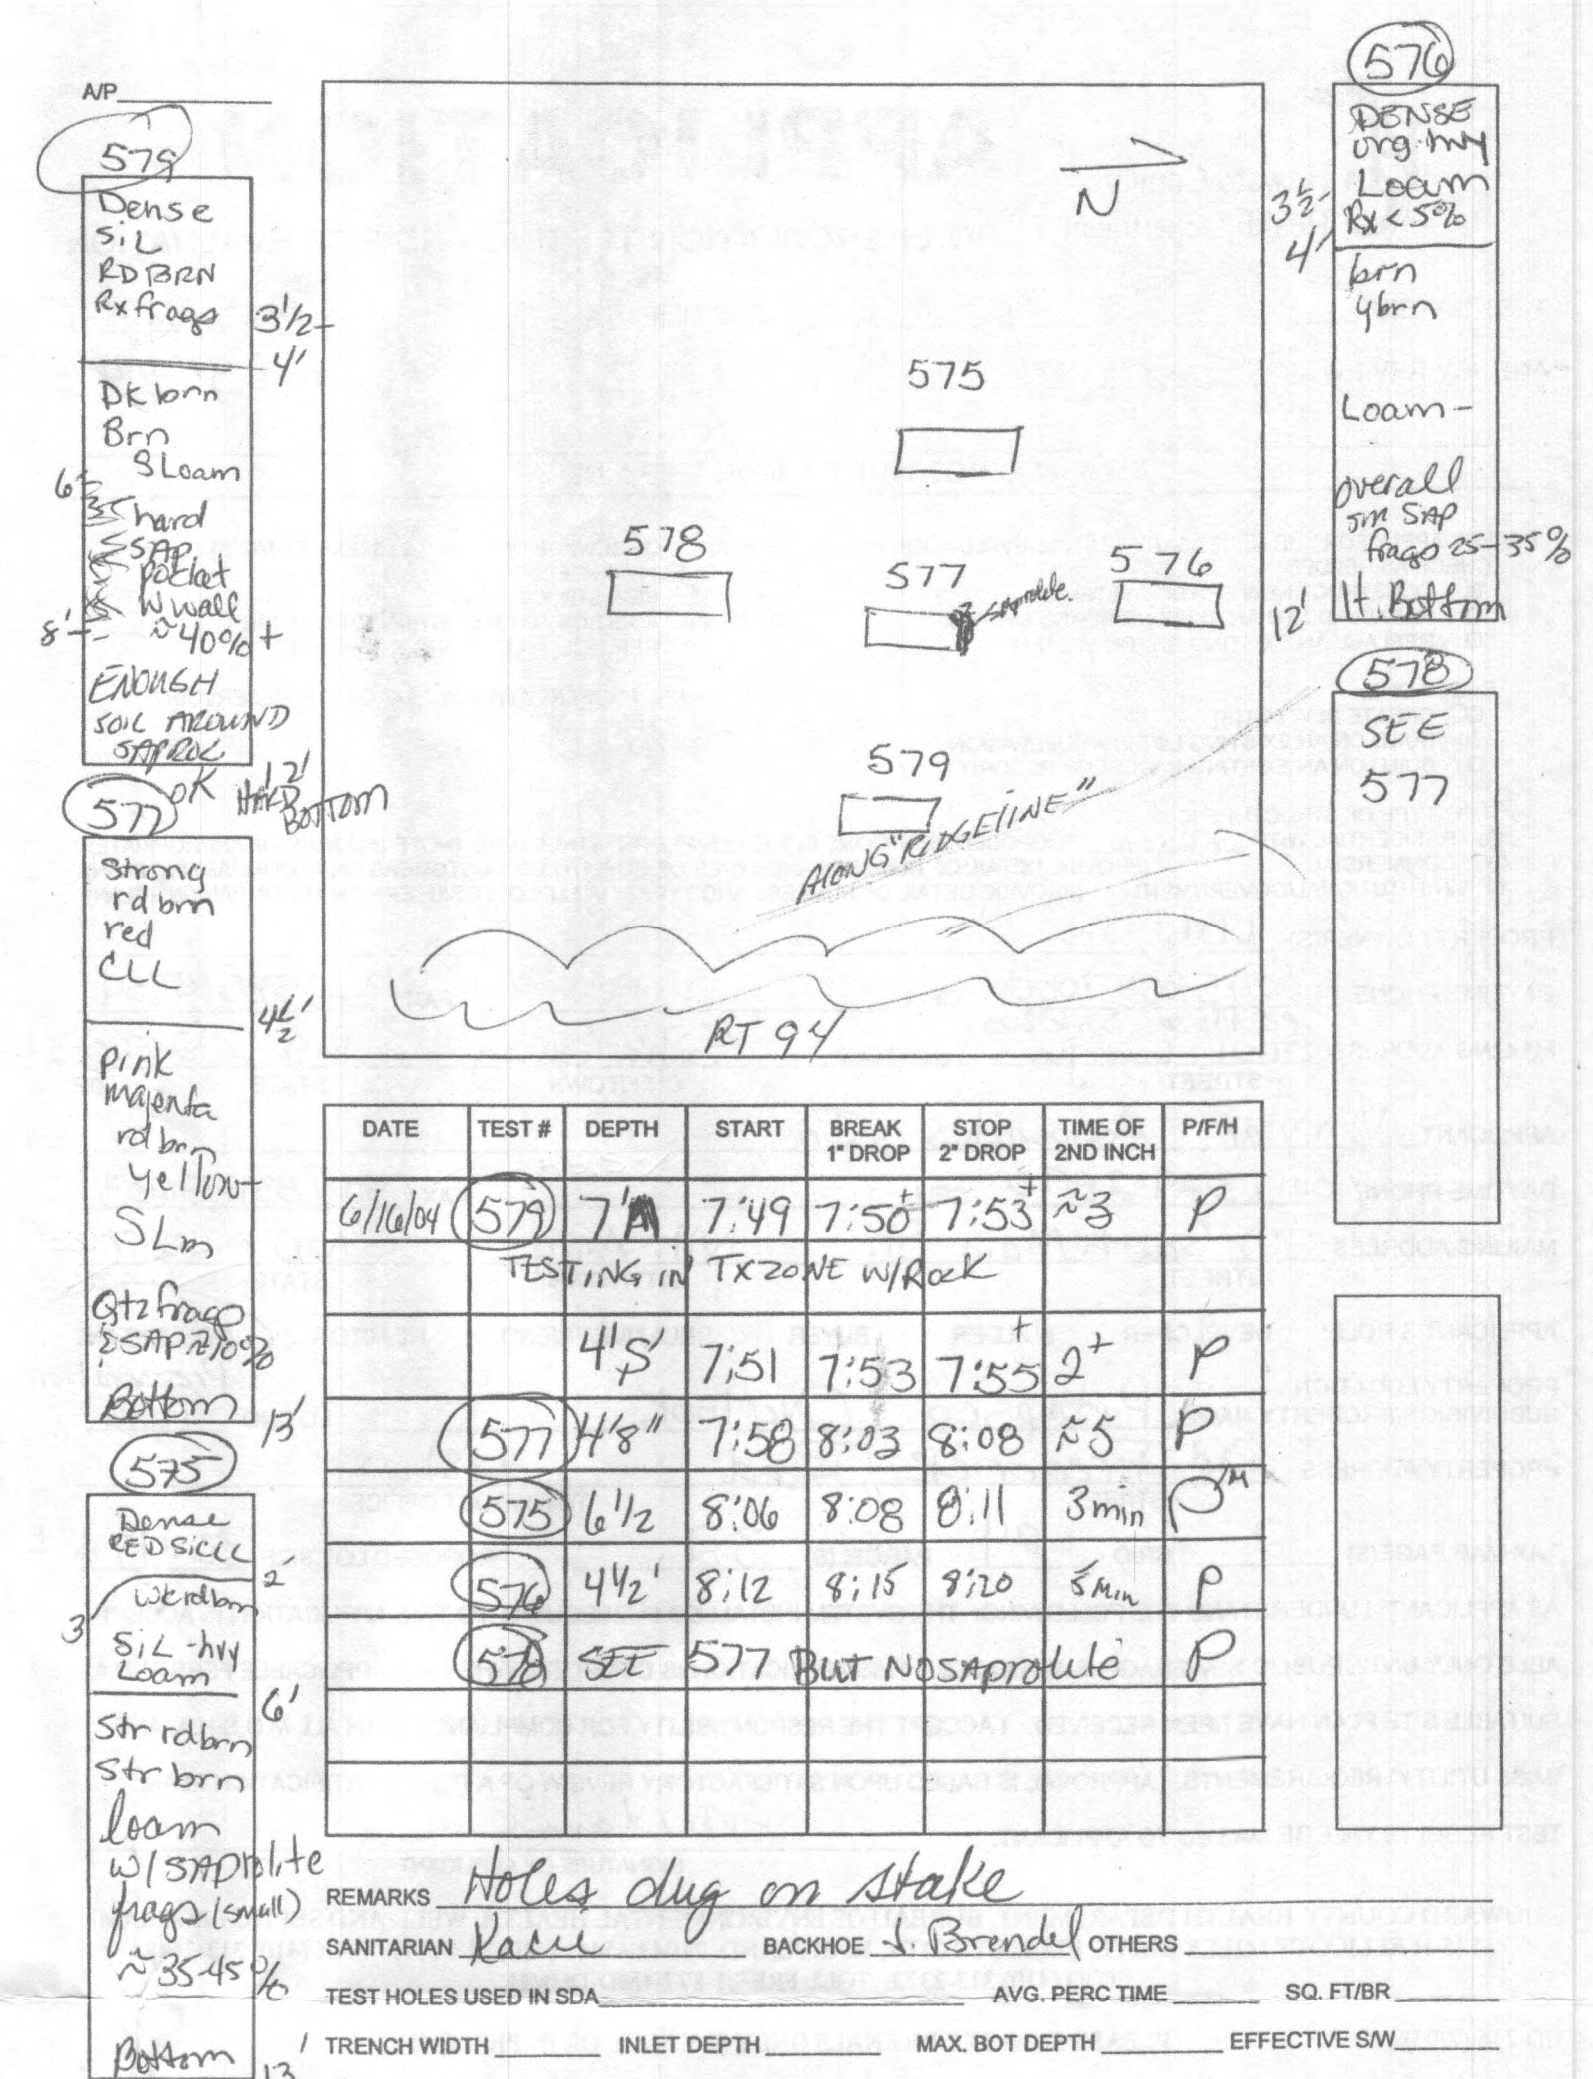 A/P
579
Dense
SiL
RD BRN
Rx frags
3 1/2
4'
DK brn
Brn
SLoam
6'
hard
SAP
pocket
W wall
≈40%+
8'
ENOUGH
SOIL AROUND
SAPROL
OK
12'
HARD
BOTTOM
577
Strong
rd brn
red
CLL
4 1/2'
pink
majenta
rd brn
yellow
SLm
Qtz frags
& SAP ≈10%
Bottom
13'
575
Dense
RED SiCLL
2'
wk rd brn
3
SiL-hvy
Loam
6'
Str rd brn
Str brn
loam
w/ SAProlite
frags (small)
≈35-45%
Bottom
13'
N
575
578
577
576
saprolite.
579
ALONG "RIDGELINE"
RT 94
576
DENSE
org. hvy
Loam
Rx <5%
3 1/2
4'
brn
ybrn
Loam-
overall
sm SAP
frags 25-35%
12'
Ht. Bottom
578
SEE
577
DATE TEST # DEPTH START BREAK 1" DROP STOP 2" DROP TIME OF 2ND INCH P/F/H
6/16/04 579 7' 7:49 7:50+ 7:53+ ≈3 P
TESTING IN TX ZONE W/ROCK
4'S' 7:51 7:53 7:55+ 2+ P
577 4'8" 7:58 8:03 8:08 ≈5 P
575 6'1/2 8:06 8:08 8:11 3 min P
576 4 1/2' 8:12 8:15 8:20 5 min P
578 SEE 577 BUT NO SAprolite P
REMARKS Holes dug on stake
SANITARIAN Kacie BACKHOE J. Brendel OTHERS
TEST HOLES USED IN SDA AVG. PERC TIME SQ. FT/BR
TRENCH WIDTH INLET DEPTH MAX. BOT DEPTH EFFECTIVE S/W